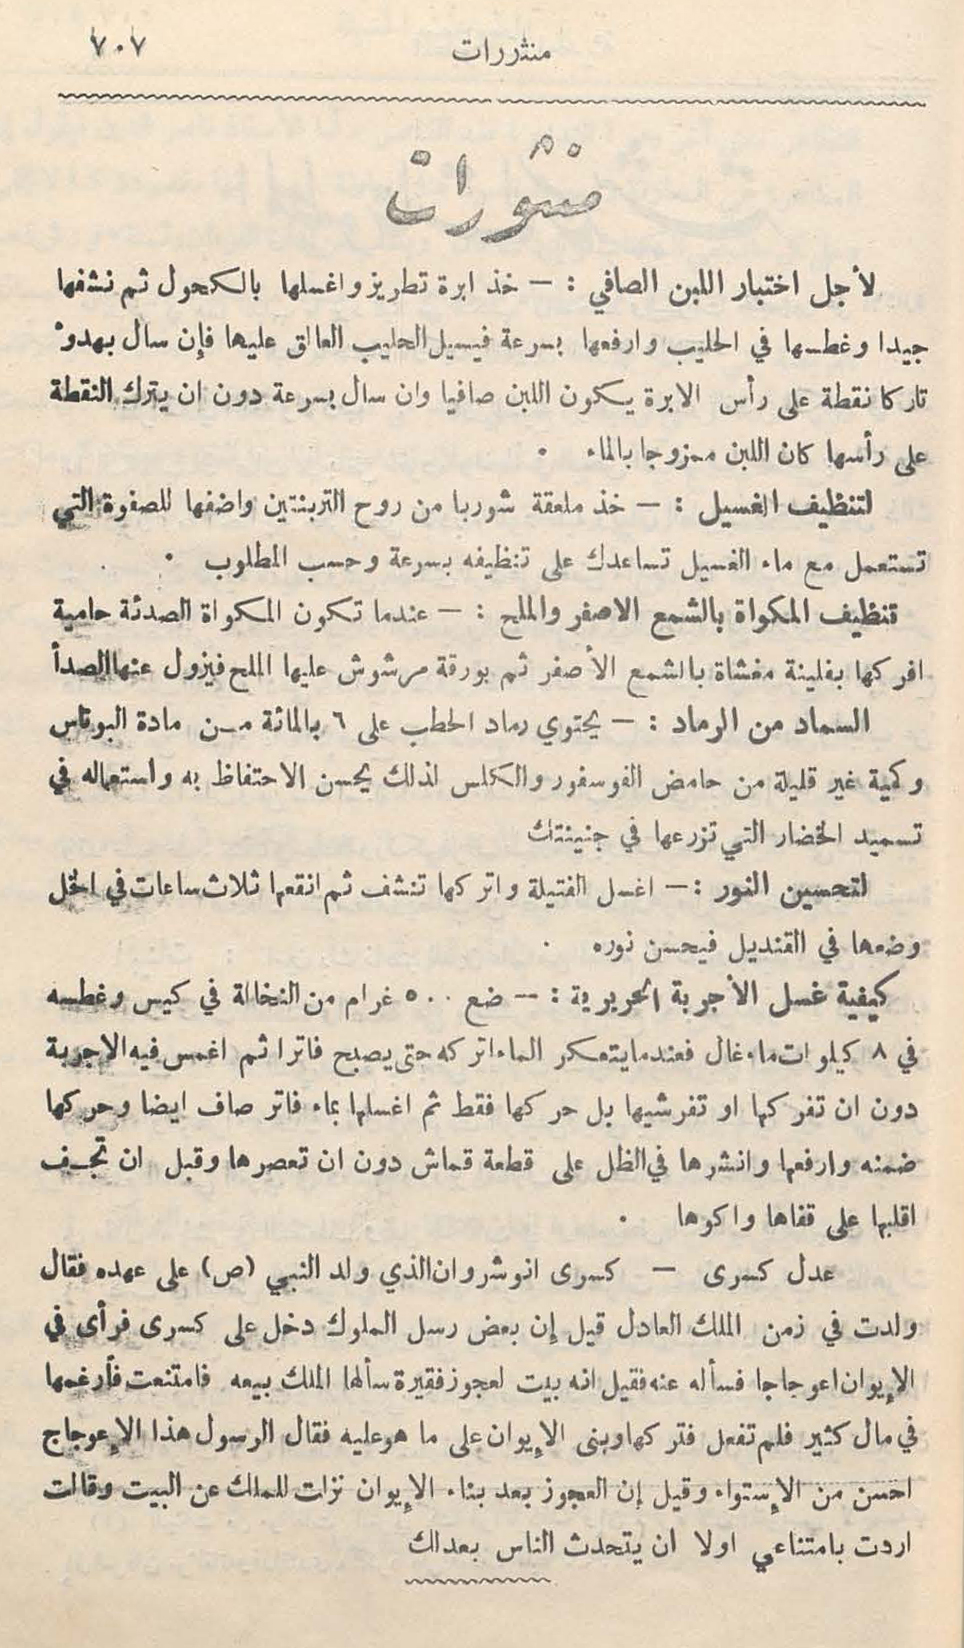 منثررات ٧٠٧
منثورات
لأجل اختبار اللبن الصافي : — خذ ابرة تطريز واغسلها بالكحول ثم نشفها
جيدا وغطسها في الحليب وارفعها بسرعة فيسيل الحليب العالق عليها فإن سال بهدوء
تاركا نقطة على رأس الابرة يكون اللبن صافيا وان سال بسرعة دون ان يترك النقطة
على رأسها كان اللبن ممزوجا بالماء .
لتنظيف الغسيل : — خذ ملعقة شوربا من روح التربنتين واضفها للصفوة التي
تستعمل مع ماء الغسيل تساعدك على تنظيفه بسرعة وحسب المطلوب .
تنظيف المكواة بالشمع الاصفر والملح : — عندما تكون المكواة الصدئة حامية
افركها بفلينة مغشاة بالشمع الأصفر ثم بورقة مرشوش عليها الملح فيزول عنها الصدأ
السماد من الرماد : — يحتوي رماد الحطب على ٦ بالمائة مـن مادة البوتاس
وكمية غير قليلة من حامض الفوسفور والكلس لذلك يحسن الاحتفاظ به واستعماله في
تسميد الخضار التي تزرعها في جنينتك
لتحسين النور : — اغسل الفتيلة واتركها تنشف ثم انقعها ثلاث ساعات في الخل
وضعها في القنديل فيحسن نوره .
كيفية غسل الأجربة الحريرية : — ضع ٥٠٠ غرام من النخالة في كيس وغطسه
في ٨ كيلوات ماء غال فعندما يتعكر الماء اتركه حتى يصبح فاترا ثم اغمس فيه الاجربة
دون ان تفركها او تفرشيها بل حركها فقط ثم اغسلها بماء فاتر صاف ايضا وحركها
ضمنه وارفعها وانشرها في الظل على قطعة قماش دون ان تعصرها وقبل ان تجـف
اقلبها على قفاها واكوها .
عدل كسرى — كسرى انوشروان الذي ولد النبي (ص) على عهده فقال
ولدت في زمن الملك العادل قيل إن بعض رسل الملوك دخل على كسرى فرأى في
الإيوان اعوجاجا فسأله عنه فقيل انه بيت لعجوز فقيرة سألها الملك بيعه فامتنعت فأرغمها
في مال كثير فلم تفعل فتركها وبنى الإيوان على ما هو عليه فقال الرسول هذا الإعوجاج
احسن من الإستواء وقيل إن العجوز بعد بناء الإيوان نزلت للملك عن البيت وقالت
اردت بامتناعي اولا ان يتحدث الناس بعدلك